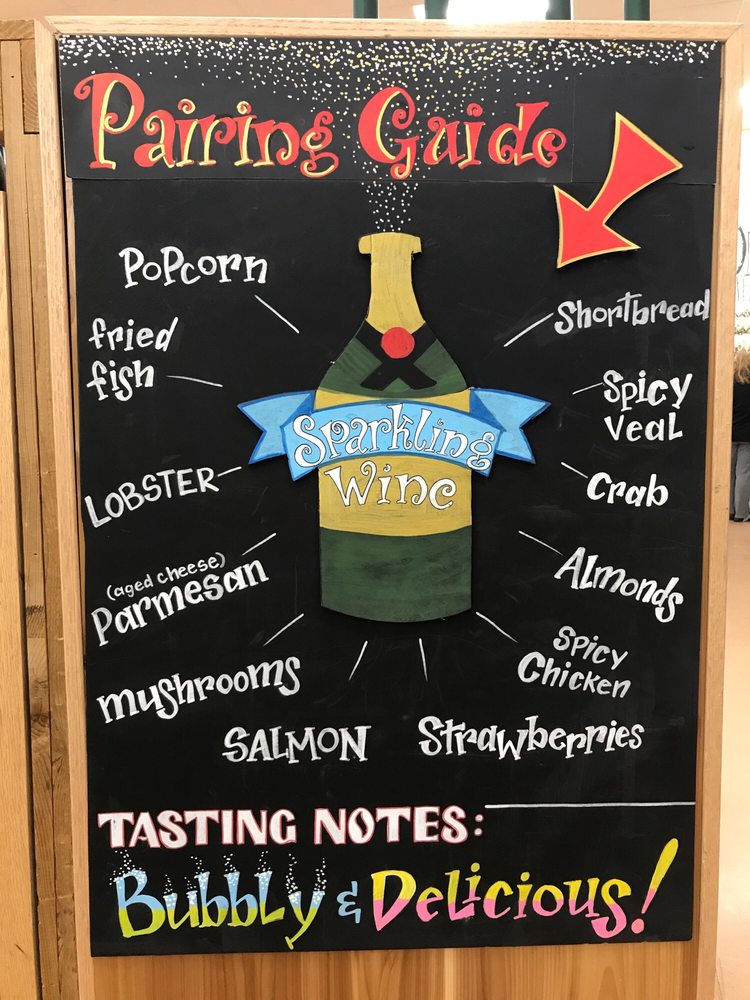 Pairing Guide
Popcorn
fried
fish
LOBSTER
(aged cheese)
Parmesan
mushrooms
SALMON
Sparkling
Wine
Shortbread
Spicy
Veal
Crab
Almonds
Spicy
Chicken
Strawberries
TASTING NOTES:
Bubbly & Delicious!